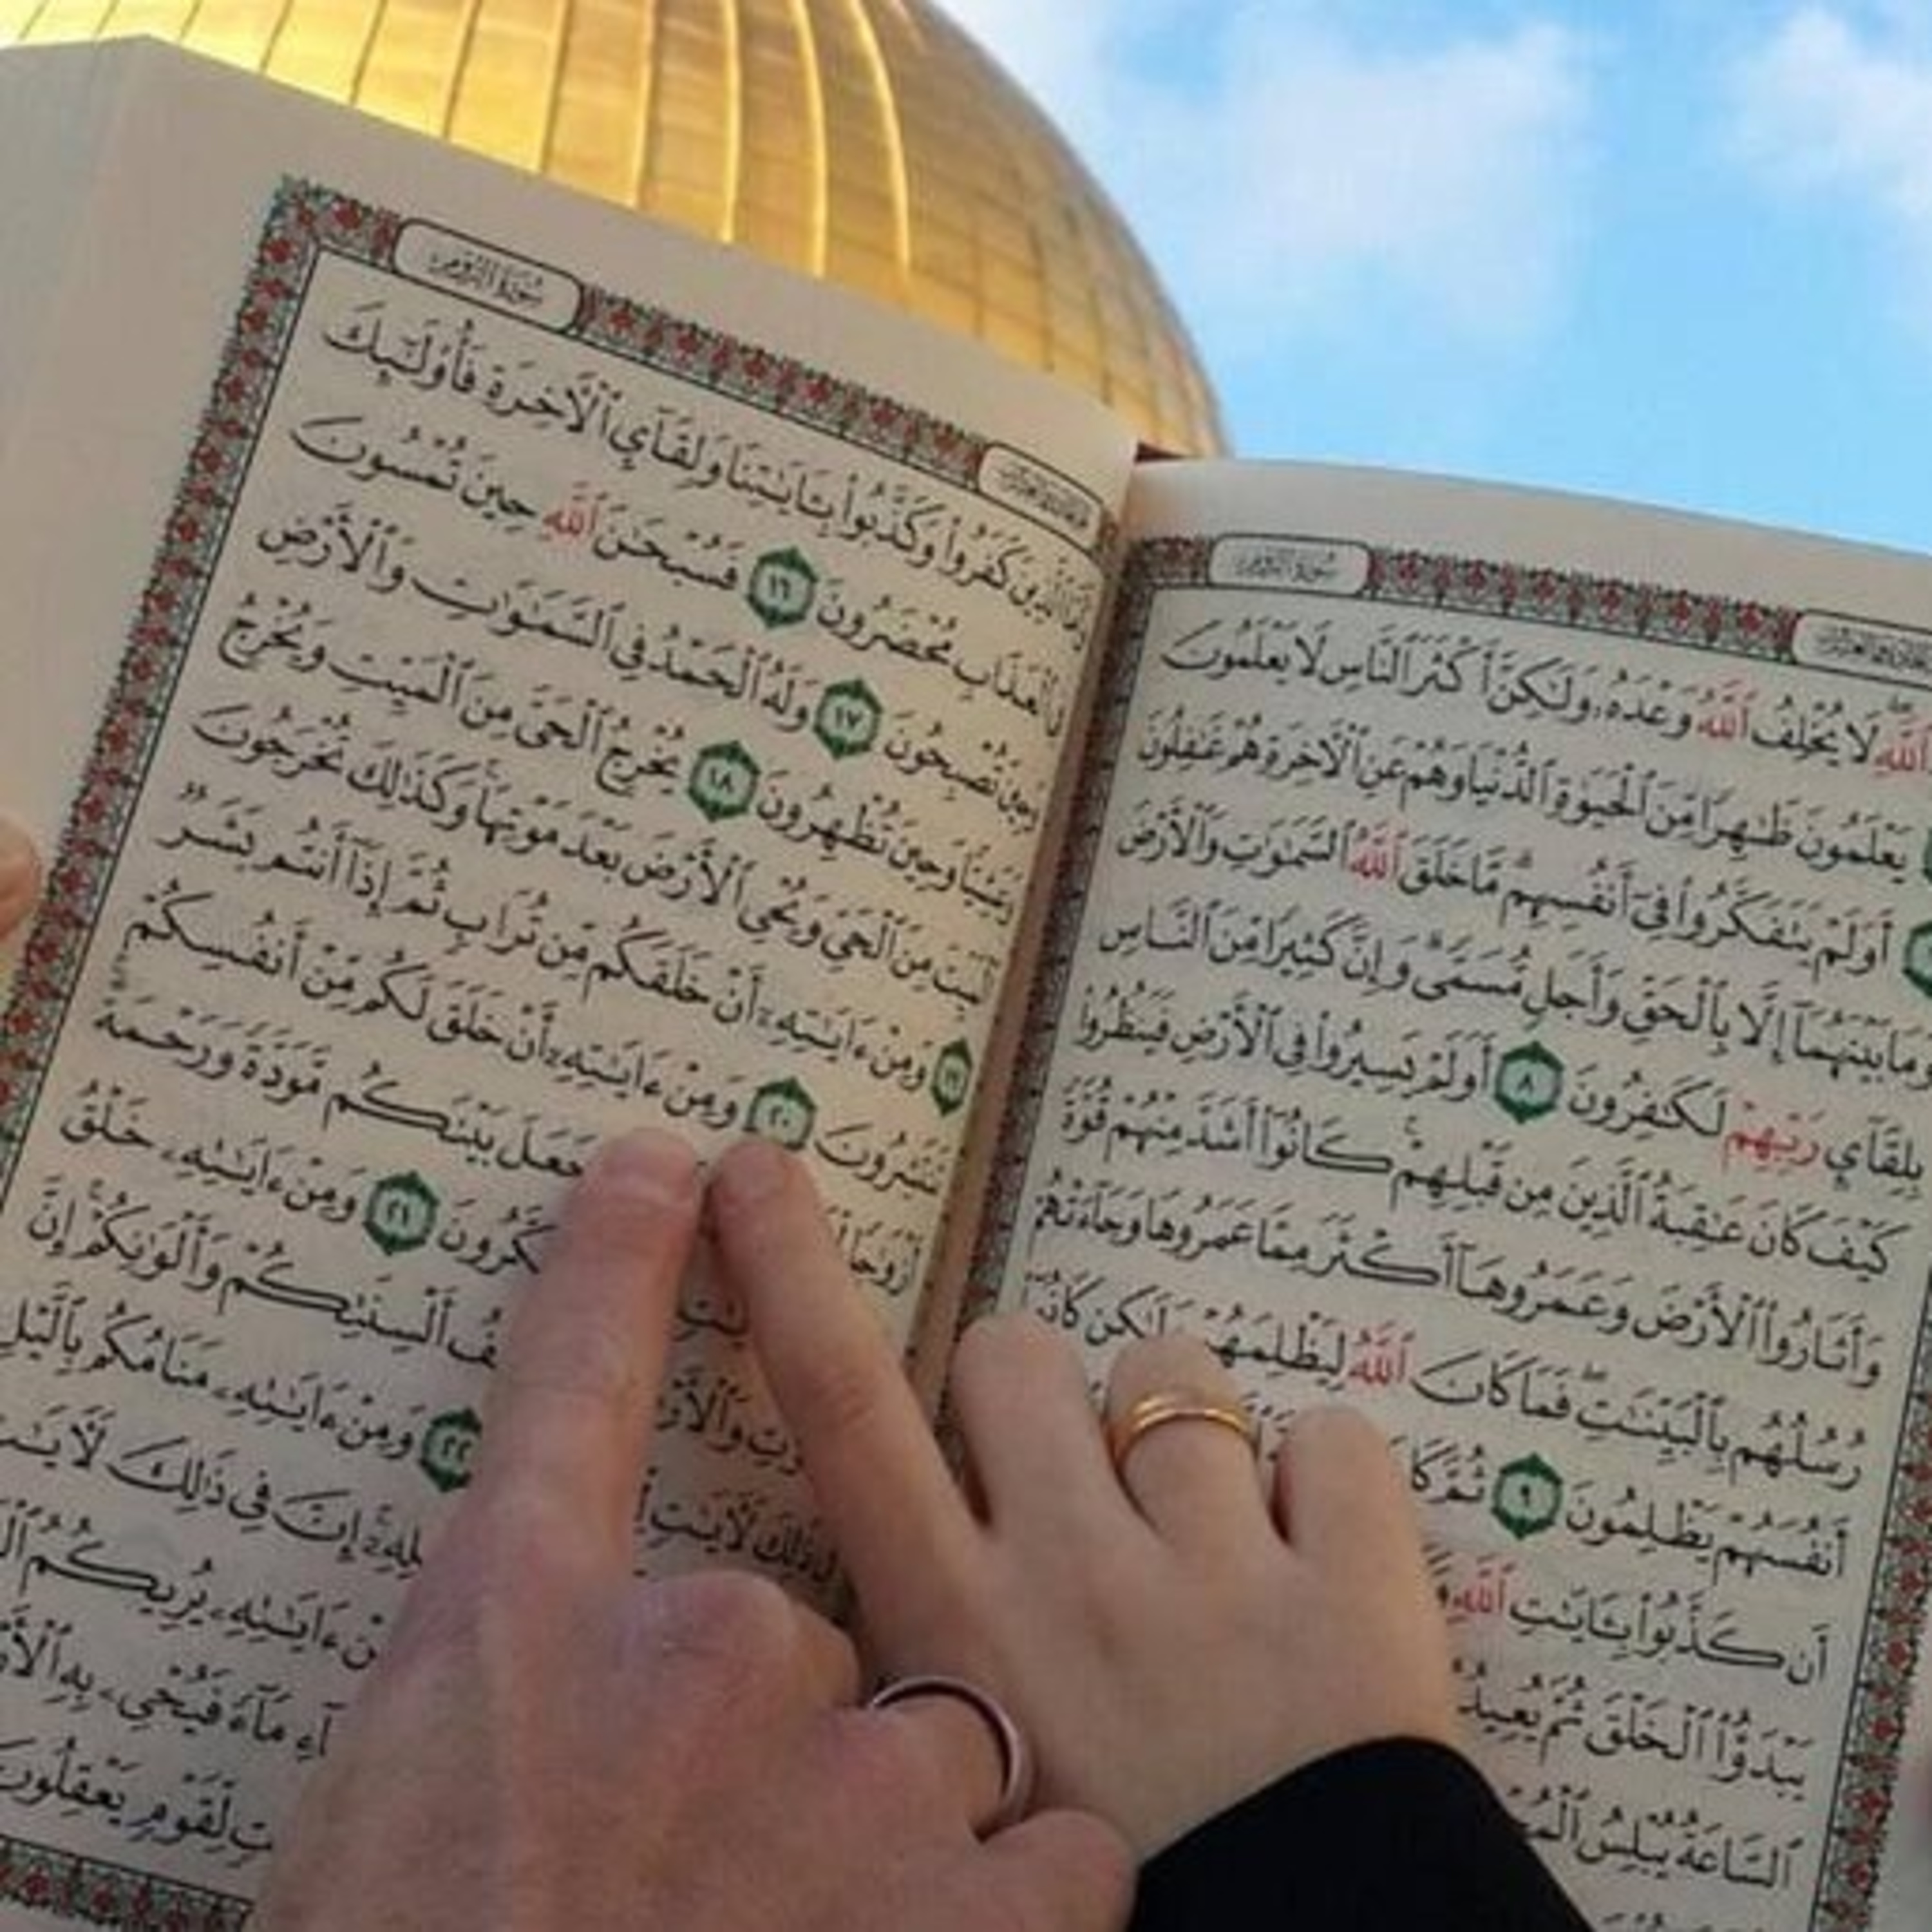 سُورَةُ الرُّومِ
ٱللَّهِ لَا يُخْلِفُ ٱللَّهُ وَعْدَهُۥ وَلَٰكِنَّ أَكْثَرَ ٱلنَّاسِ لَا يَعْلَمُونَ
يَعْلَمُونَ ظَٰهِرًا مِّنَ ٱلْحَيَوٰةِ ٱلدُّنْيَا وَهُمْ عَنِ ٱلْأَخِرَةِ هُمْ غَٰفِلُونَ
أَوَلَمْ يَتَفَكَّرُوا۟ فِىٓ أَنفُسِهِم ۗ مَّا خَلَقَ ٱللَّهُ ٱلسَّمَٰوَٰتِ وَٱلْأَرْضَ
وَمَا بَيْنَهُمَآ إِلَّا بِٱلْحَقِّ وَأَجَلٍ مُّسَمًّى ۗ وَإِنَّ كَثِيرًا مِّنَ ٱلنَّاسِ
بِلِقَآئِ رَبِّهِمْ لَكَٰفِرُونَ ٨ أَوَلَمْ يَسِيرُوا۟ فِى ٱلْأَرْضِ فَيَنظُرُوا۟
كَيْفَ كَانَ عَٰقِبَةُ ٱلَّذِينَ مِن قَبْلِهِمْ ۚ كَانُوٓا۟ أَشَدَّ مِنْهُمْ قُوَّةً
وَأَثَارُوا۟ ٱلْأَرْضَ وَعَمَرُوهَآ أَكْثَرَ مِمَّا عَمَرُوهَا وَجَآءَتْهُمْ
رُسُلُهُم بِٱلْبَيِّنَٰتِ ۖ فَمَا كَانَ ٱللَّهُ لِيَظْلِمَهُمْ وَلَٰكِن كَانُوٓا۟
أَنفُسَهُمْ يَظْلِمُونَ ٩ ثُمَّ كَا
أَن كَذَّبُوا۟ بِـَٔايَٰتِ ٱللَّهِ وَ
يَبْدَؤُا۟ ٱلْخَلْقَ ثُمَّ يُعِيدُ
ٱلسَّاعَةُ يُبْلِسُ ٱلْمُ
سُورَةُ الرُّومِ
وَأَمَّا ٱلَّذِينَ كَفَرُوا۟ وَكَذَّبُوا۟ بِـَٔايَٰتِنَا وَلِقَآئِ ٱلْأَخِرَةِ فَأُو۟لَٰٓئِكَ
فِى ٱلْعَذَابِ مُحْضَرُونَ ١٦ فَسُبْحَٰنَ ٱللَّهِ حِينَ تُمْسُونَ
وَحِينَ تُصْبِحُونَ ١٧ وَلَهُ ٱلْحَمْدُ فِى ٱلسَّمَٰوَٰتِ وَٱلْأَرْضِ
وَعَشِيًّا وَحِينَ تُظْهِرُونَ ١٨ يُخْرِجُ ٱلْحَىَّ مِنَ ٱلْمَيِّتِ وَيُخْرِجُ
ٱلْمَيِّتَ مِنَ ٱلْحَىِّ وَيُحْىِ ٱلْأَرْضَ بَعْدَ مَوْتِهَا ۚ وَكَذَٰلِكَ تُخْرَجُونَ
١٩ وَمِنْ ءَايَٰتِهِۦٓ أَنْ خَلَقَكُم مِّن تُرَابٍ ثُمَّ إِذَآ أَنتُم بَشَرٌ
تَنتَشِرُونَ ٢٠ وَمِنْ ءَايَٰتِهِۦٓ أَنْ خَلَقَ لَكُم مِّنْ أَنفُسِكُمْ
أَزْوَٰجًا جَعَلَ بَيْنَكُم مَّوَدَّةً وَرَحْمَةً
كَّرُونَ ٢١ وَمِنْ ءَايَٰتِهِۦ خَلْقُ
وَٰتِ وَٱلْأَرْ فُ أَلْسِنَتِكُمْ وَأَلْوَٰنِكُمْ ۚ إِنَّ
ذَٰلِكَ لَأَيَٰتٍ ٢٢ وَمِنْ ءَايَٰتِهِۦ مَنَامُكُم بِٱلَّيْلِ
لِهِۦٓ ۚ إِنَّ فِى ذَٰلِكَ لَأَيَٰ
نْ ءَايَٰتِهِۦ يُرِيكُمُ ٱلْ
آءِ مَآءً فَيُحْىِۦ بِهِ ٱلْأَرْ
تٍ لِّقَوْمٍ يَعْقِلُونَ